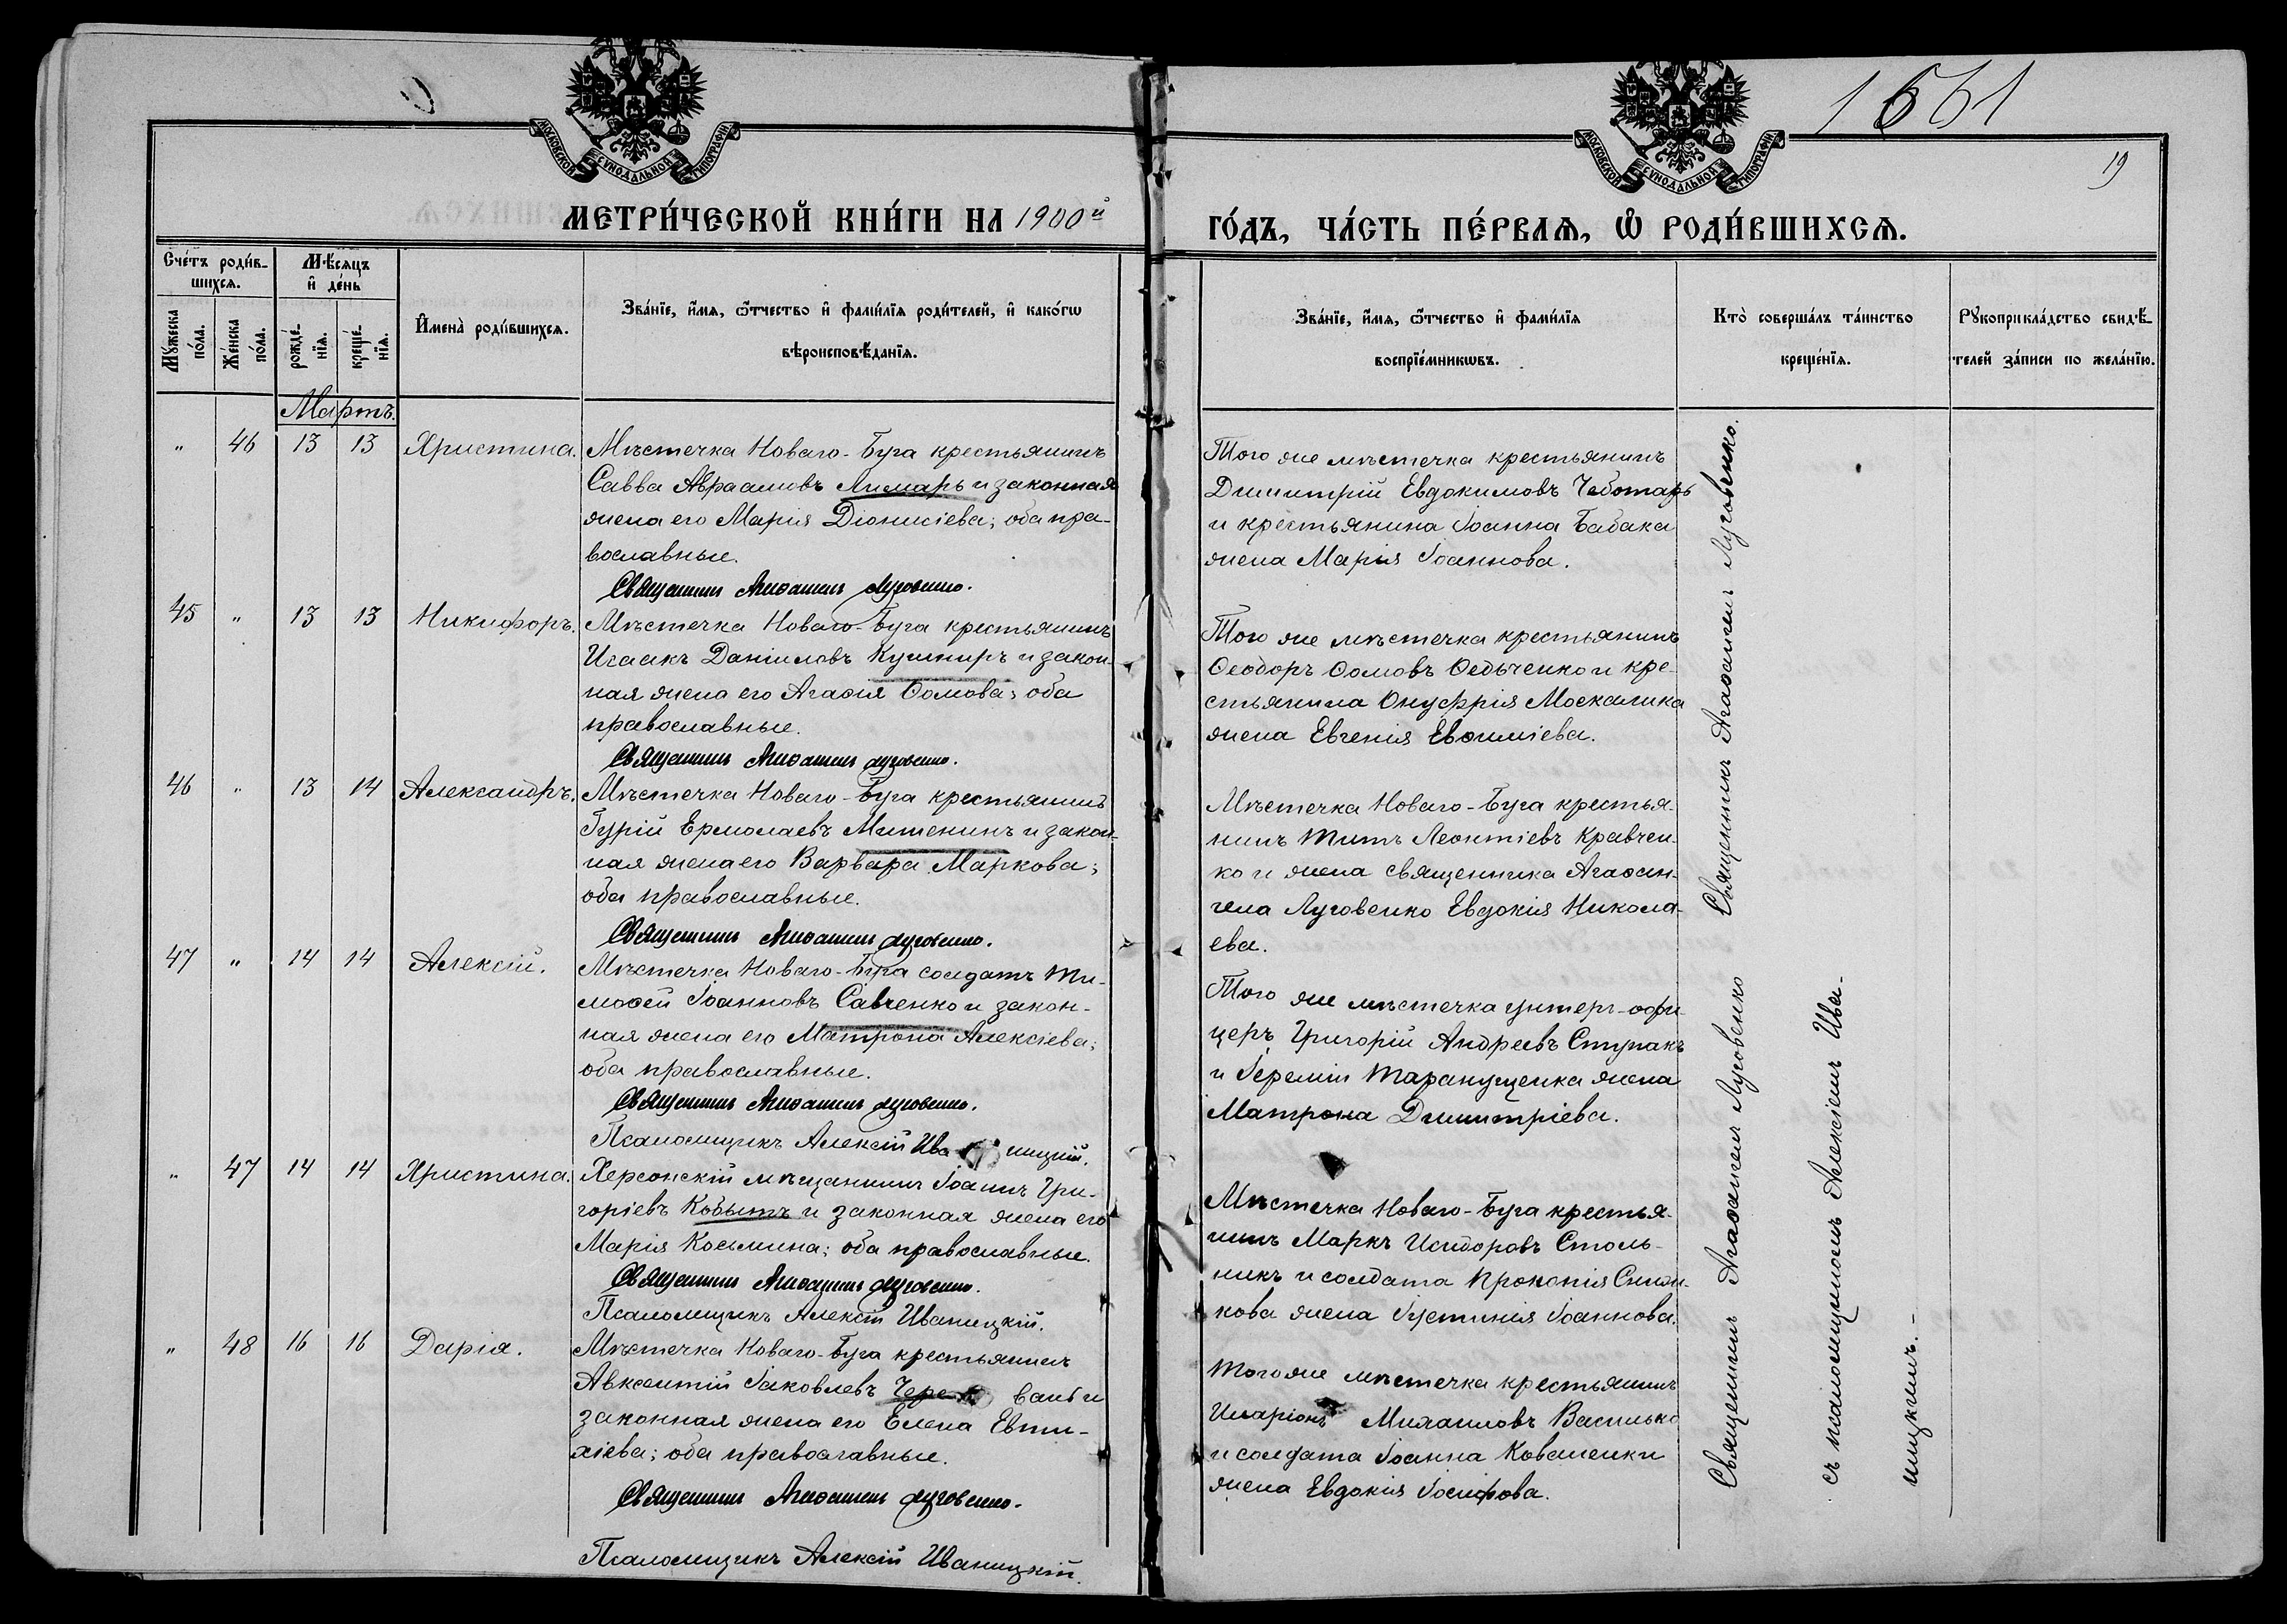 1661
19
МОСКОВСКОЙ СѴНОДАЛЬНОЙ ТИПОГРАФІИ
МОСКОВСКОЙ СѴНОДАЛЬНОЙ ТИПОГРАФІИ
МЕТРИ́ЧЕСКОЙ КНИ́ГИ НА 1900й
ГО́ДЪ, ЧА́СТЬ ПЕ́РВАѦ, Ѡ҆ РОДИ́ВШИХСѦ.
Сче́тъ роди́в-
шихсѧ.
Мѣ́сѧцъ
и҆ де́нь
Мꙋ́жеска
по́ла.
Же́нска
по́ла.
рожде́-
нїѧ.
креще́-
нїѧ.
И҆мена̀ роди́вшихсѧ.
Зва́нїе, и҆́мѧ, ѻ҆́тчество и҆ фами́лїѧ роди́телей, и҆ како́гѡ
вѣроисповѣ́данїѧ.
Зва́нїе, и҆́мѧ, ѻ҆́тчество и҆ фами́лїѧ
воспрїе́мникѡвъ.
Кто̀ соверша́лъ та́инство
креще́нїѧ.
Рꙋкоприкла́дство свидѣ́-
телей за́писи по жела́нїю.
Мартъ.
" 46 13 13 Христина.
Мѣстечка Новаго-Буга крестьянинъ
Савва Авраамовъ Лимарь и законная
жена его Марія Діонисіева; оба пра-
вославные.
Священникъ Агаѳангелъ Луговенко.
Того же мѣстечка крестьянинъ
Димитрій Евдокимовъ Чеботарь
и крестьянина Іоанна Бабака
жена Марія Іоаннова.
45 " 13 13 Никифоръ.
Мѣстечка Новаго-Буга крестьянинъ
Исаакъ Даніиловъ Кушниръ и закон-
ная жена его Агаѳія Ѳомова; оба
православные.
Священникъ Агаѳангелъ Луговенко.
Того же мѣстечка крестьянинъ
Ѳеодоръ Ѳомовъ Ѳедьченко и кре-
стьянина Онуфрія Москалика
жена Евгенія Евѳиміева.
46 " 13 14 Александръ.
Мѣстечка Новаго-Буга крестьянинъ
Гурій Ермолаевъ Митенинъ и закон-
ная жена его Варвара Маркова;
оба православные.
Священникъ Агаѳангелъ Луговенко.
Мѣстечка Новаго-Буга крестья-
нинъ Титъ Леонтіевъ Кравчен-
ко и жена священника Агаѳан-
гела Луговенко Евдокія Никола-
ева.
47 " 14 14 Алексій.
Мѣстечка Новаго-Буга солдатъ Ти-
моѳей Іоанновъ Савченко и закон-
ная жена его Матрона Алексіева;
оба православные.
Священникъ Агаѳангелъ Луговенко.
Псаломщикъ Алексій Ива ницкій.
Того же мѣстечка унтеръ-офи-
церъ Григорій Андреевъ Ступакъ
и Іереміи Таранущенка жена
Матрона Димитріева.
" 47 14 14 Христина.
Херсонскій мѣщанинъ Іоаннъ Гри-
горіевъ Кобытъ и законная жена его
Марія Косьмина; оба православные.
Священникъ Агаѳангелъ Луговенко.
Псаломщикъ Алексій Иваницкій.
Мѣстечка Новаго-Буга крестья-
нинъ Маркъ Исидоровъ Столь-
никъ и солдата Прокопія
кова жена Іустинія Іоаннова.
" 48 16 16 Дарія.
Мѣстечка Новаго-Буга крестьянинъ
Авксентій Іаковлевъ Чере вань и
законная жена его Елена Евти-
хіева; оба православные.
Священникъ Агаѳангелъ Луговенко.
Псаломщикъ Алексій Иваницкій.
Того же мѣстечка крестьянинъ
Иларіонъ Михаиловъ Василько
и солдата Іоанна Коваленки
жена Евдокія Іосифова.
Священникъ Агаѳангелъ Луговенко.
Священникъ Агаѳангелъ Луговенко
съ псаломщикомъ Алексіемъ Ива-
ницкимъ.-